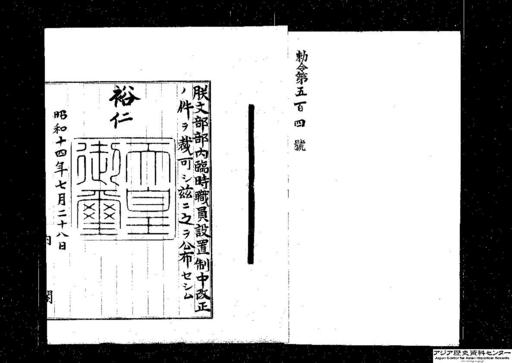 勅令第五百四號
朕文部部內臨時職員設置制中改正
ノ件ヲ裁可シ茲ニ之ヲ公布セシム
裕仁
天皇御璽
昭和十四年七月二十八日
内閣
アジア歴史資料センター
Japan Center for Asian Historical Records